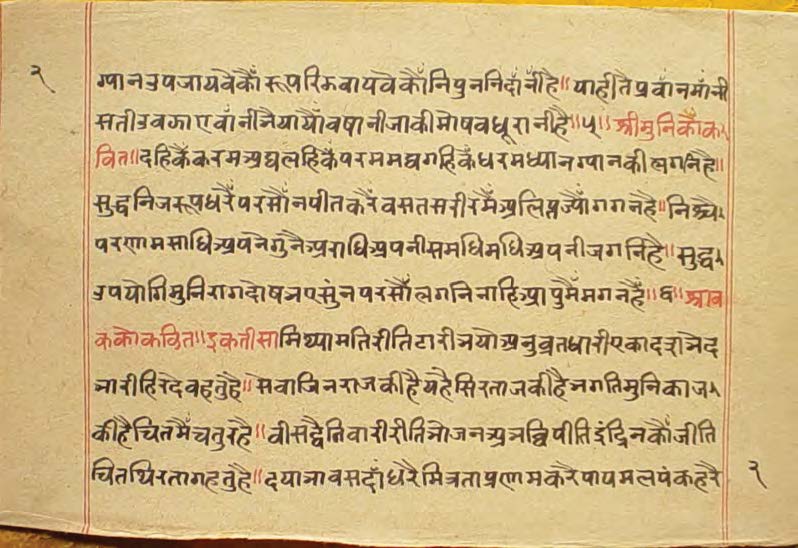 २
ग्यानउपजायवेकौं रूपरिझवायवेकौं निपुननिदांनीहै॥ याहीतैप्रवांनमांनी
सतीउवझाएवांनीभैयायौंवषानीजाकीमोषवधूरानीहै॥५॥ श्रीमुनिकौक
वित॥ दहिकैंकरमअघलहिकैंपरममघगहिकैंधरमध्यानग्यानकीलगनहै॥
सुद्धनिजरूपधरैंपरसौंनपीतकरैंवसतसरीरमैंअलिप्तज्यौंगगनहै॥ निश्चे
परणामसाधिअपनेगुनैअराधिअपनीसमाधिमधिअपनीजगनिहै॥ सुद्ध
उपयोगिमुनिरागदोषभएसुंनपरसौंलगनिनाहिआपुमैंमगनहैं॥६॥ श्राव
ककोकवित॥ इकतीसा मिथ्यामतिरीतिटारीभयोअनुव्रतधारीएकादशभेद
भारीहिरदेवहतुहै॥ सेवाजिनराजकीहैयहैसिरताजकीहैभगतिमुनिकाज
कीहैचितमैंचतुरहै॥ वीसद्वैनिवारीरीतिभोजनअभक्षिपीतिइंद्रिनकौंजीति
चितथिरतागहतुहै॥ दयाभावसदांधरैमित्रताप्रणामकरैपापमलपंकहरै
२